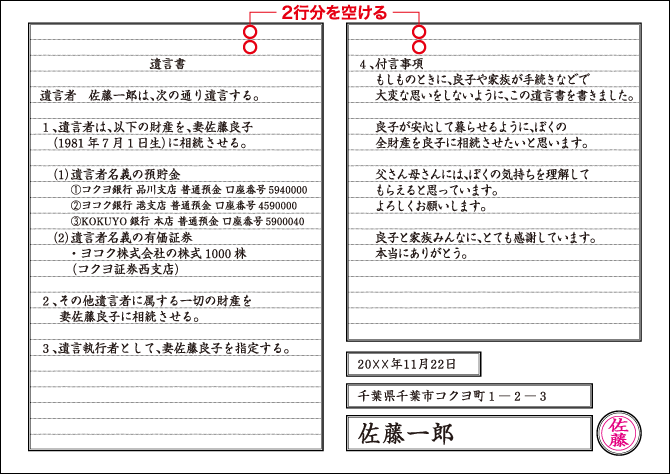 2行分を空ける
遺言書
遺言者 佐藤一郎は、次の通り遺言する。
1、遺言者は、以下の財産を、妻佐藤良子
(1981年7月1日生)に相続させる。
(1)遺言者名義の預貯金
①コクヨ銀行 品川支店 普通預金 口座番号5940000
②ヨコク銀行 港支店 普通預金 口座番号4590000
③KOKUYO銀行 本店 普通預金 口座番号5900040
(2)遺言者名義の有価証券
・ヨコク株式会社の株式1000株
(コクヨ証券西支店)
2、その他遺言者に属する一切の財産を
妻佐藤良子に相続させる。
3、遺言執行者として、妻佐藤良子を指定する。
4、付言事項
もしものときに、良子や家族が手続きなどで
大変な思いをしないように、この遺言書を書きました。
良子が安心して暮らせるように、ぼくの
全財産を良子に相続させたいと思います。
父さん母さんには、ぼくの気持ちを理解して
もらえると思っています。
よろしくお願いします。
良子と家族みんなに、とても感謝しています。
本当にありがとう。
20××年11月22日
千葉県千葉市コクヨ町1－2－3
佐藤一郎
佐藤